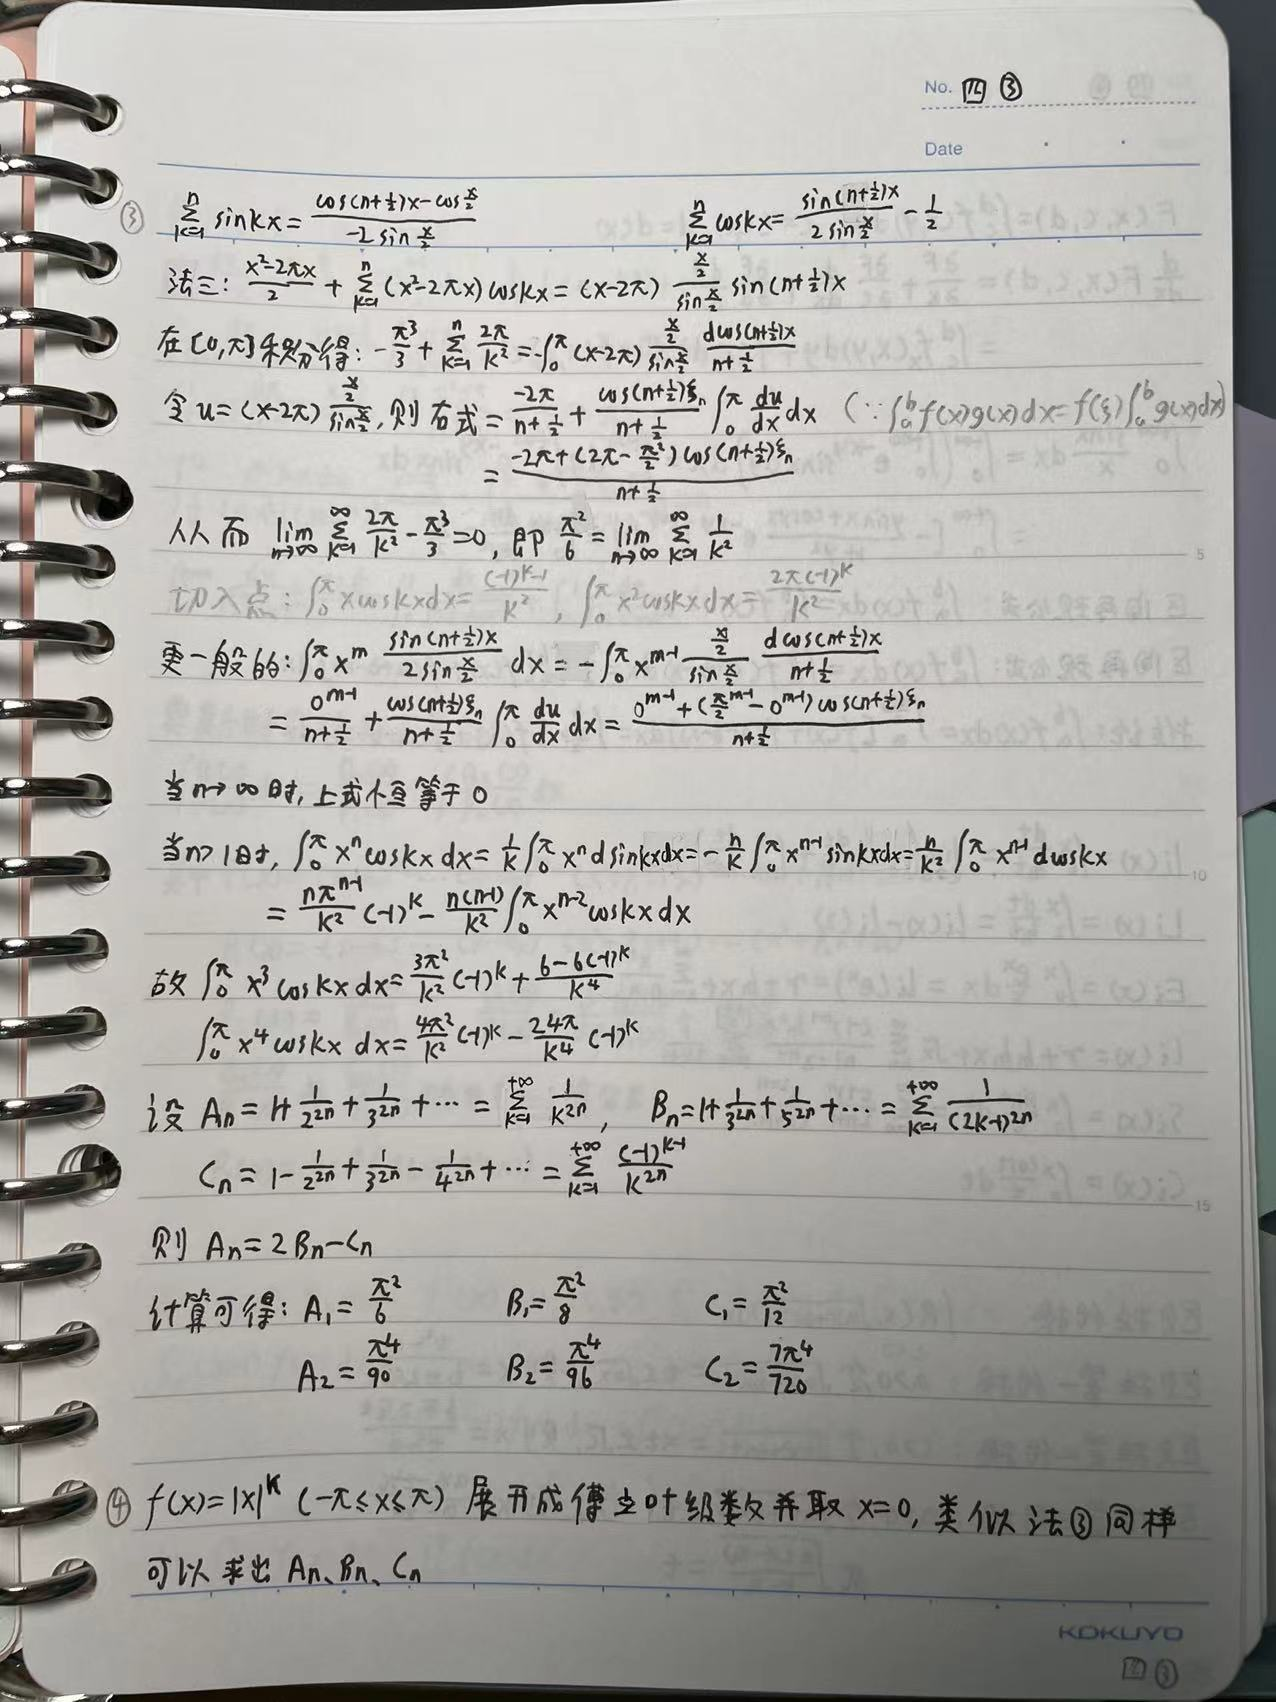 No. 四 ③
Date
③ $\sum_{k=1}^{n} \sin kx = \frac{\cos(n+\frac{1}{2})x - \cos\frac{x}{2}}{-2\sin\frac{x}{2}}$ $\sum_{k=1}^{n} \cos kx = \frac{\sin(n+\frac{1}{2})x}{2\sin\frac{x}{2}} - \frac{1}{2}$
法三: $\frac{x^2-2\pi x}{2} + \sum_{k=1}^{n} (x^2-2\pi x)\cos kx = (x-2\pi)\frac{\frac{x}{2}}{\sin\frac{x}{2}} \sin(n+\frac{1}{2})x$
在[0,π]积分得: $-\frac{\pi^3}{3} + \sum_{k=1}^{n} \frac{2\pi}{k^2} = -\int_0^\pi (x-2\pi)\frac{\frac{x}{2}}{\sin\frac{x}{2}} \frac{d\cos(n+\frac{1}{2})x}{n+\frac{1}{2}}$
令 $u=(x-2\pi)\frac{\frac{x}{2}}{\sin\frac{x}{2}}$, 则右式 $= \frac{-2\pi}{n+\frac{1}{2}} + \frac{\cos(n+\frac{1}{2})\xi_n}{n+\frac{1}{2}} \int_0^\pi \frac{du}{dx}dx$ $(\because \int_a^b f(x)g(x)dx = f(\xi)\int_a^b g(x)dx)$
$= \frac{-2\pi+(2\pi-\frac{\pi^2}{2})\cos(n+\frac{1}{2})\xi_n}{n+\frac{1}{2}}$
从而 $\lim_{n\to\infty} \sum_{k=1}^{\infty} \frac{2\pi}{k^2} - \frac{\pi^3}{3} = 0$, 即 $\frac{\pi^2}{6} = \lim_{n\to\infty} \sum_{k=1}^{\infty} \frac{1}{k^2}$
切入点: $\int_0^\pi x\cos kx dx = \frac{(-1)^{k}-1}{k^2}$, $\int_0^\pi x^2\cos kx dx = \frac{2\pi(-1)^k}{k^2}$
更一般的: $\int_0^\pi x^m \frac{\sin(n+\frac{1}{2})x}{2\sin\frac{x}{2}} dx = -\int_0^\pi x^{m-1} \frac{\frac{x}{2}}{\sin\frac{x}{2}} \frac{d\cos(n+\frac{1}{2})x}{n+\frac{1}{2}}$
$= \frac{0^{m-1}}{n+\frac{1}{2}} + \frac{\cos(n+\frac{1}{2})\xi_n}{n+\frac{1}{2}} \int_0^\pi \frac{du}{dx}dx = \frac{0^{m-1}+(\frac{\pi}{2}^{m-1}-0^{m-1})\cos(n+\frac{1}{2})\xi_n}{n+\frac{1}{2}}$
当n→∞时, 上式恒等于0
当n>1时, $\int_0^\pi x^n\cos kx dx = \frac{1}{k}\int_0^\pi x^n d\sin kx dx = -\frac{n}{k}\int_0^\pi x^{n-1}\sin kx dx = \frac{n}{k^2}\int_0^\pi x^{n-1} d\cos kx$
$= \frac{n\pi^{n-1}}{k^2}(-1)^k - \frac{n(n-1)}{k^2}\int_0^\pi x^{n-2}\cos kx dx$
故 $\int_0^\pi x^3\cos kx dx = \frac{3\pi^2}{k^2}(-1)^k + \frac{6-6(-1)^k}{k^4}$
$\int_0^\pi x^4\cos kx dx = \frac{4\pi^2}{k^2}(-1)^k - \frac{24\pi}{k^4}(-1)^k$
设 $A_n = 1+\frac{1}{2^{2n}}+\frac{1}{3^{2n}}+\cdots = \sum_{k=1}^{+\infty} \frac{1}{k^{2n}}$, $B_n = 1+\frac{1}{3^{2n}}+\frac{1}{5^{2n}}+\cdots = \sum_{k=1}^{+\infty} \frac{1}{(2k-1)^{2n}}$
$C_n = 1-\frac{1}{2^{2n}}+\frac{1}{3^{2n}}-\frac{1}{4^{2n}}+\cdots = \sum_{k=1}^{+\infty} \frac{(-1)^{k-1}}{k^{2n}}$
则 $A_n = 2B_n - C_n$
计算可得: $A_1 = \frac{\pi^2}{6}$ $B_1 = \frac{\pi^2}{8}$ $C_1 = \frac{\pi^2}{12}$
$A_2 = \frac{\pi^4}{90}$ $B_2 = \frac{\pi^4}{96}$ $C_2 = \frac{7\pi^4}{720}$
④ $f(x) = |x|^k$ $(-\pi \le x \le \pi)$ 展开成傅立叶级数并取 x=0, 类似法③同样
可以求出 $A_n$、$B_n$、$C_n$
KOKUYO
四 ③